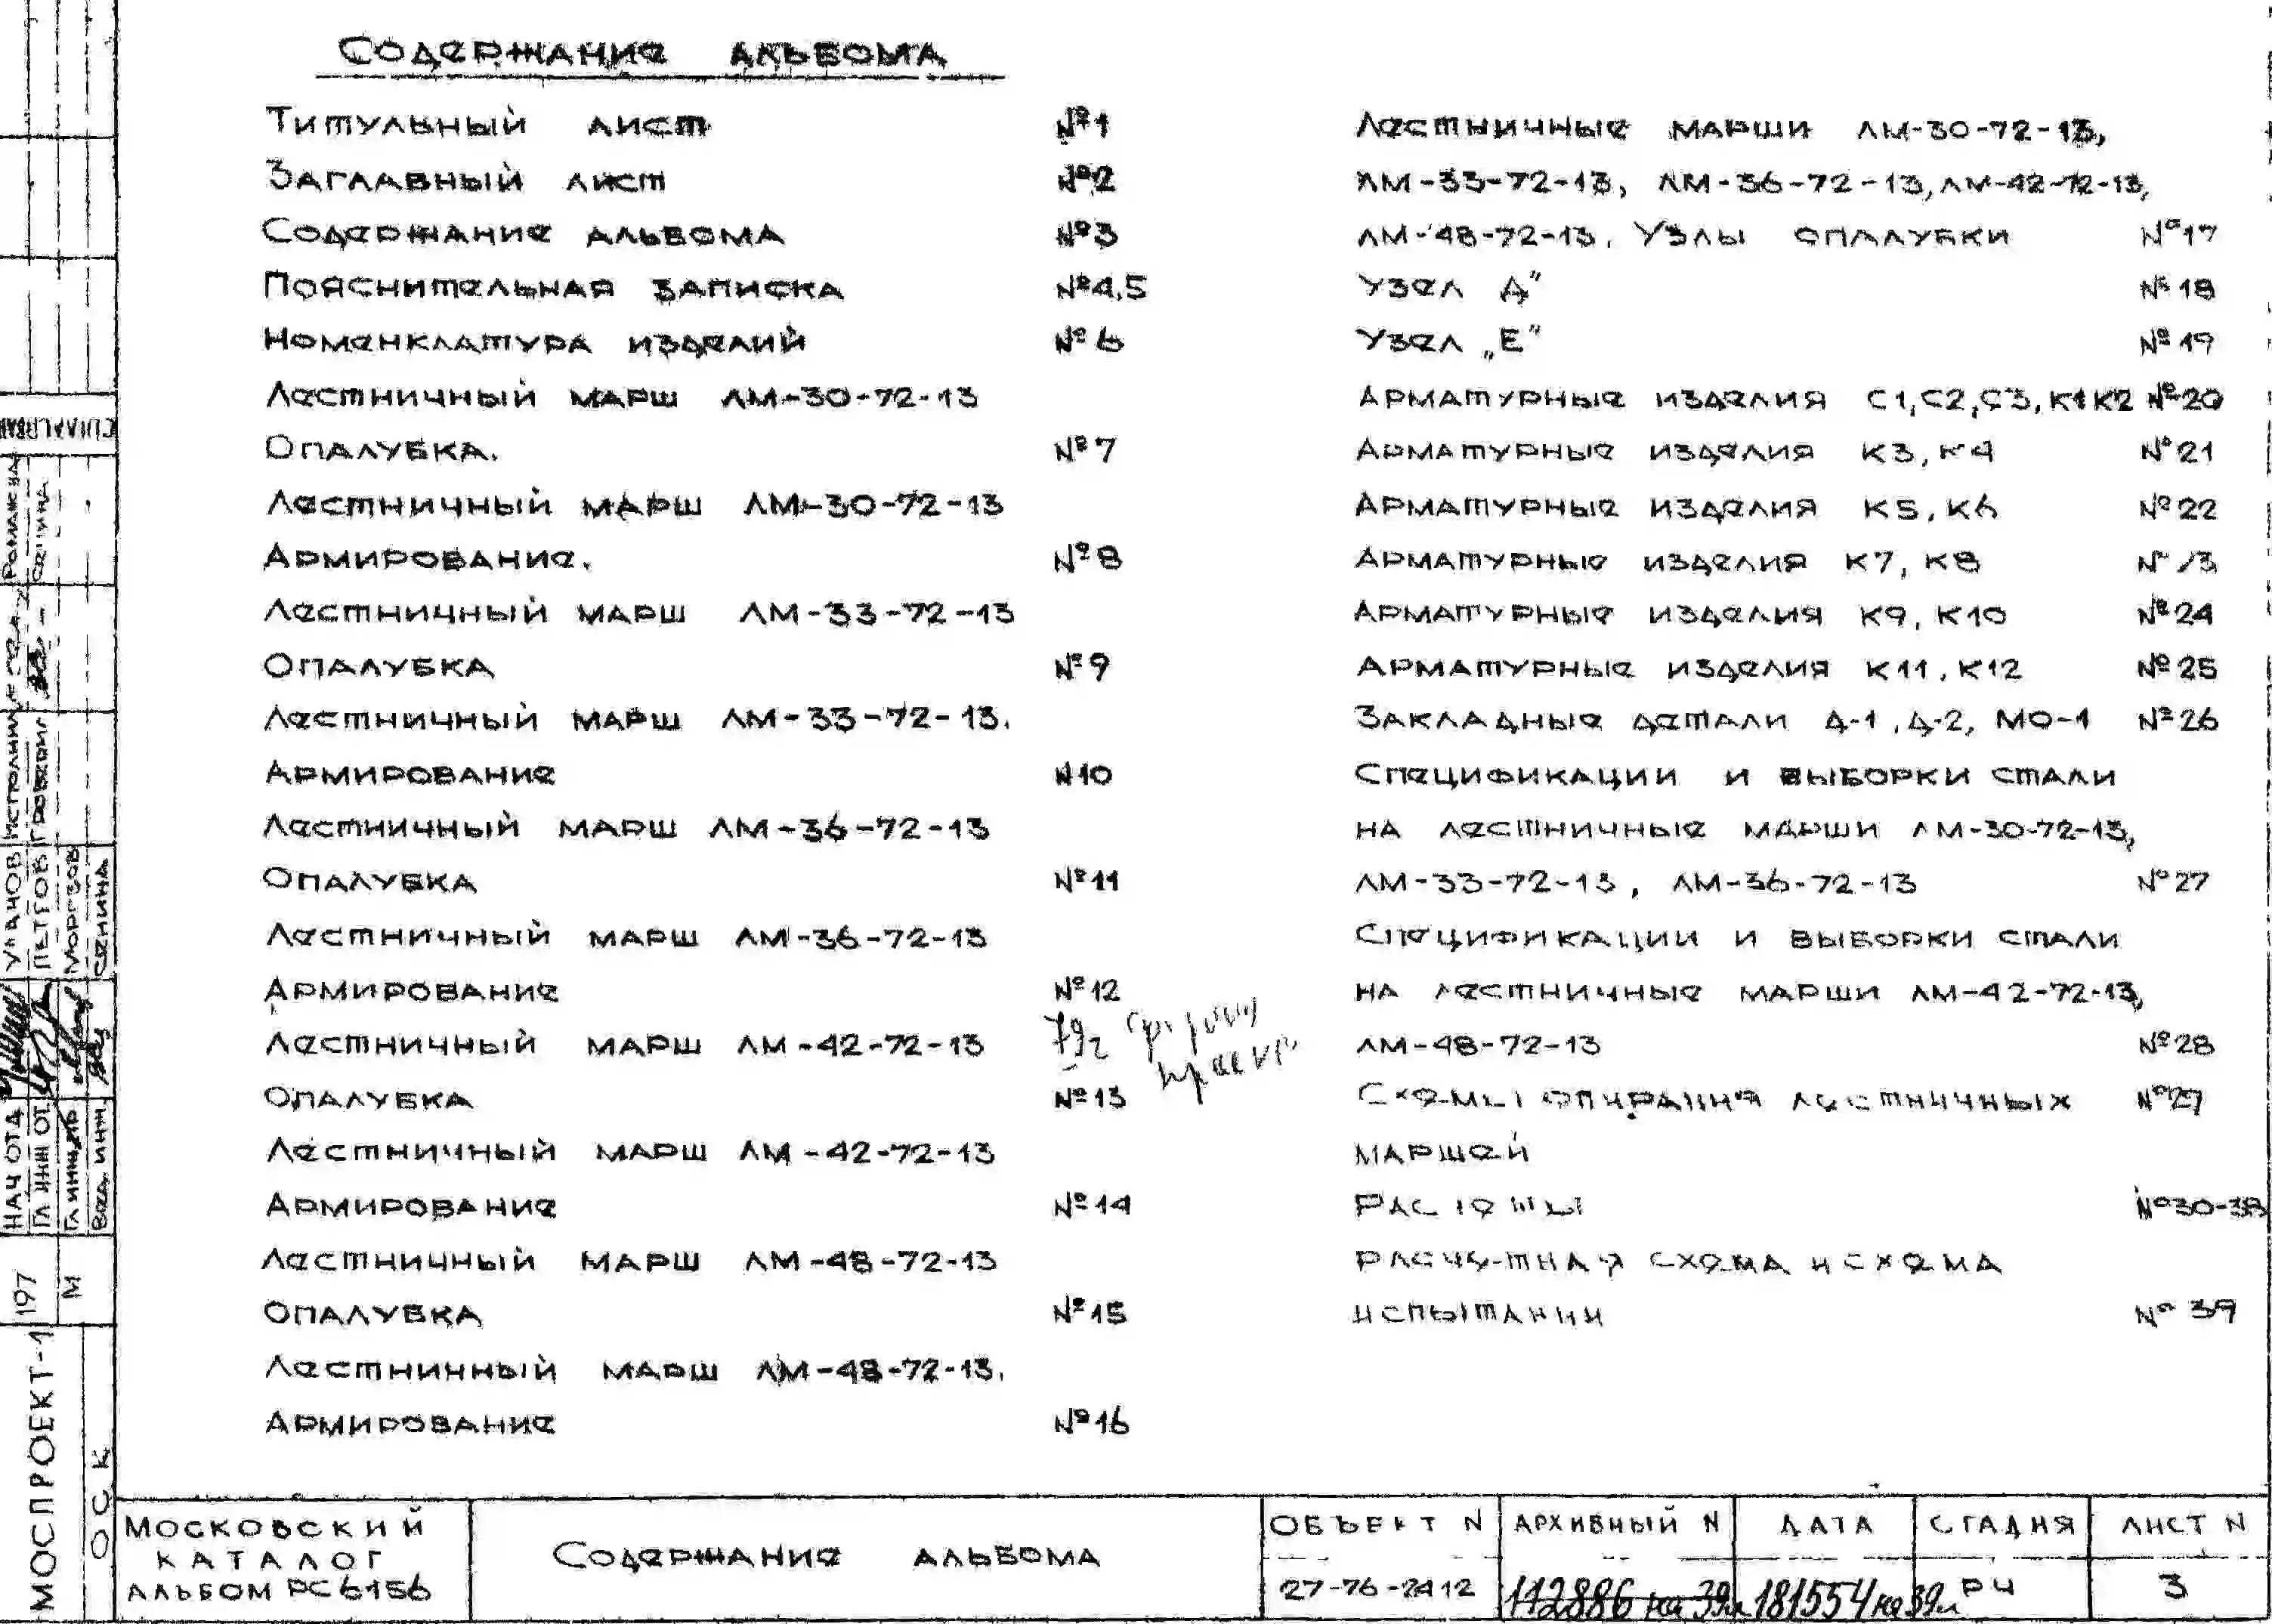 Содержание альбома
Титульный лист №1
Заглавный лист №2
Содержание альбома №3
Пояснительная записка №4,5
Номенклатура изделий №6
Лестничный марш ЛМ-30-72-13
Опалубка. №7
Лестничный марш ЛМ-30-72-13
Армирование. №8
Лестничный марш ЛМ-33-72-13
Опалубка №9
Лестничный марш ЛМ-33-72-13.
Армирование N10
Лестничный марш ЛМ-36-72-13
Опалубка №11
Лестничный марш ЛМ-36-72-13
Армирование №12
Лестничный марш ЛМ-42-72-13
Опалубка №13
Лестничный марш ЛМ-42-72-13
Армирование №14
Лестничный марш ЛМ-48-72-13
Опалубка №15
Лестничный марш ЛМ-48-72-13.
Армирование №16
Лестничные марши ЛМ-30-72-13,
ЛМ-33-72-13, ЛМ-36-72-13, ЛМ-42-72-13,
ЛМ-48-72-13. Узлы опалубки №17
Узел Д" №18
Узел „Е" №19
Арматурные изделия С1, С2, С3, К1 К2 №20
Арматурные изделия К3, К4 №21
Арматурные изделия К5, К6 №22
Арматурные изделия К7, К8
Арматурные изделия К9, К10 №24
Арматурные изделия К11, К12 №25
Закладные детали Д-1, Д-2, МО-1 №26
Спецификации и выборки стали
на лестничные марши ЛМ-30-72-13,
ЛМ-33-72-13, ЛМ-36-72-13 №27
Спецификации и выборки стали
на лестничные марши ЛМ-42-72-13,
ЛМ-48-72-13 №28
Схемы опирания лестничных
маршей
№30-38
Расчетная схема и схема
испытании № 39
СОГЛАСОВАН
НАЧ ОТД УЛАНОВ ИСПОЛНИЛ
ГЛ ИНЖ ОТ. ПЕТРОВ ПРОВЕРИЛ СЕНИНА
МОРГЗОВ
Вед. инж. СЕНИНА
197 М
МОСПРОЕКТ-1
ОСК
МОСКОВСКИЙ
КАТАЛОГ
АЛЬБОМ РС6156
Содержание альбома
ОБЪЕКТ N АРХИВНЫЙ N ДАТА СТАДИЯ ЛИСТ N
27-76-2412 112886 на 39л 181554 на 39л РЧ 3